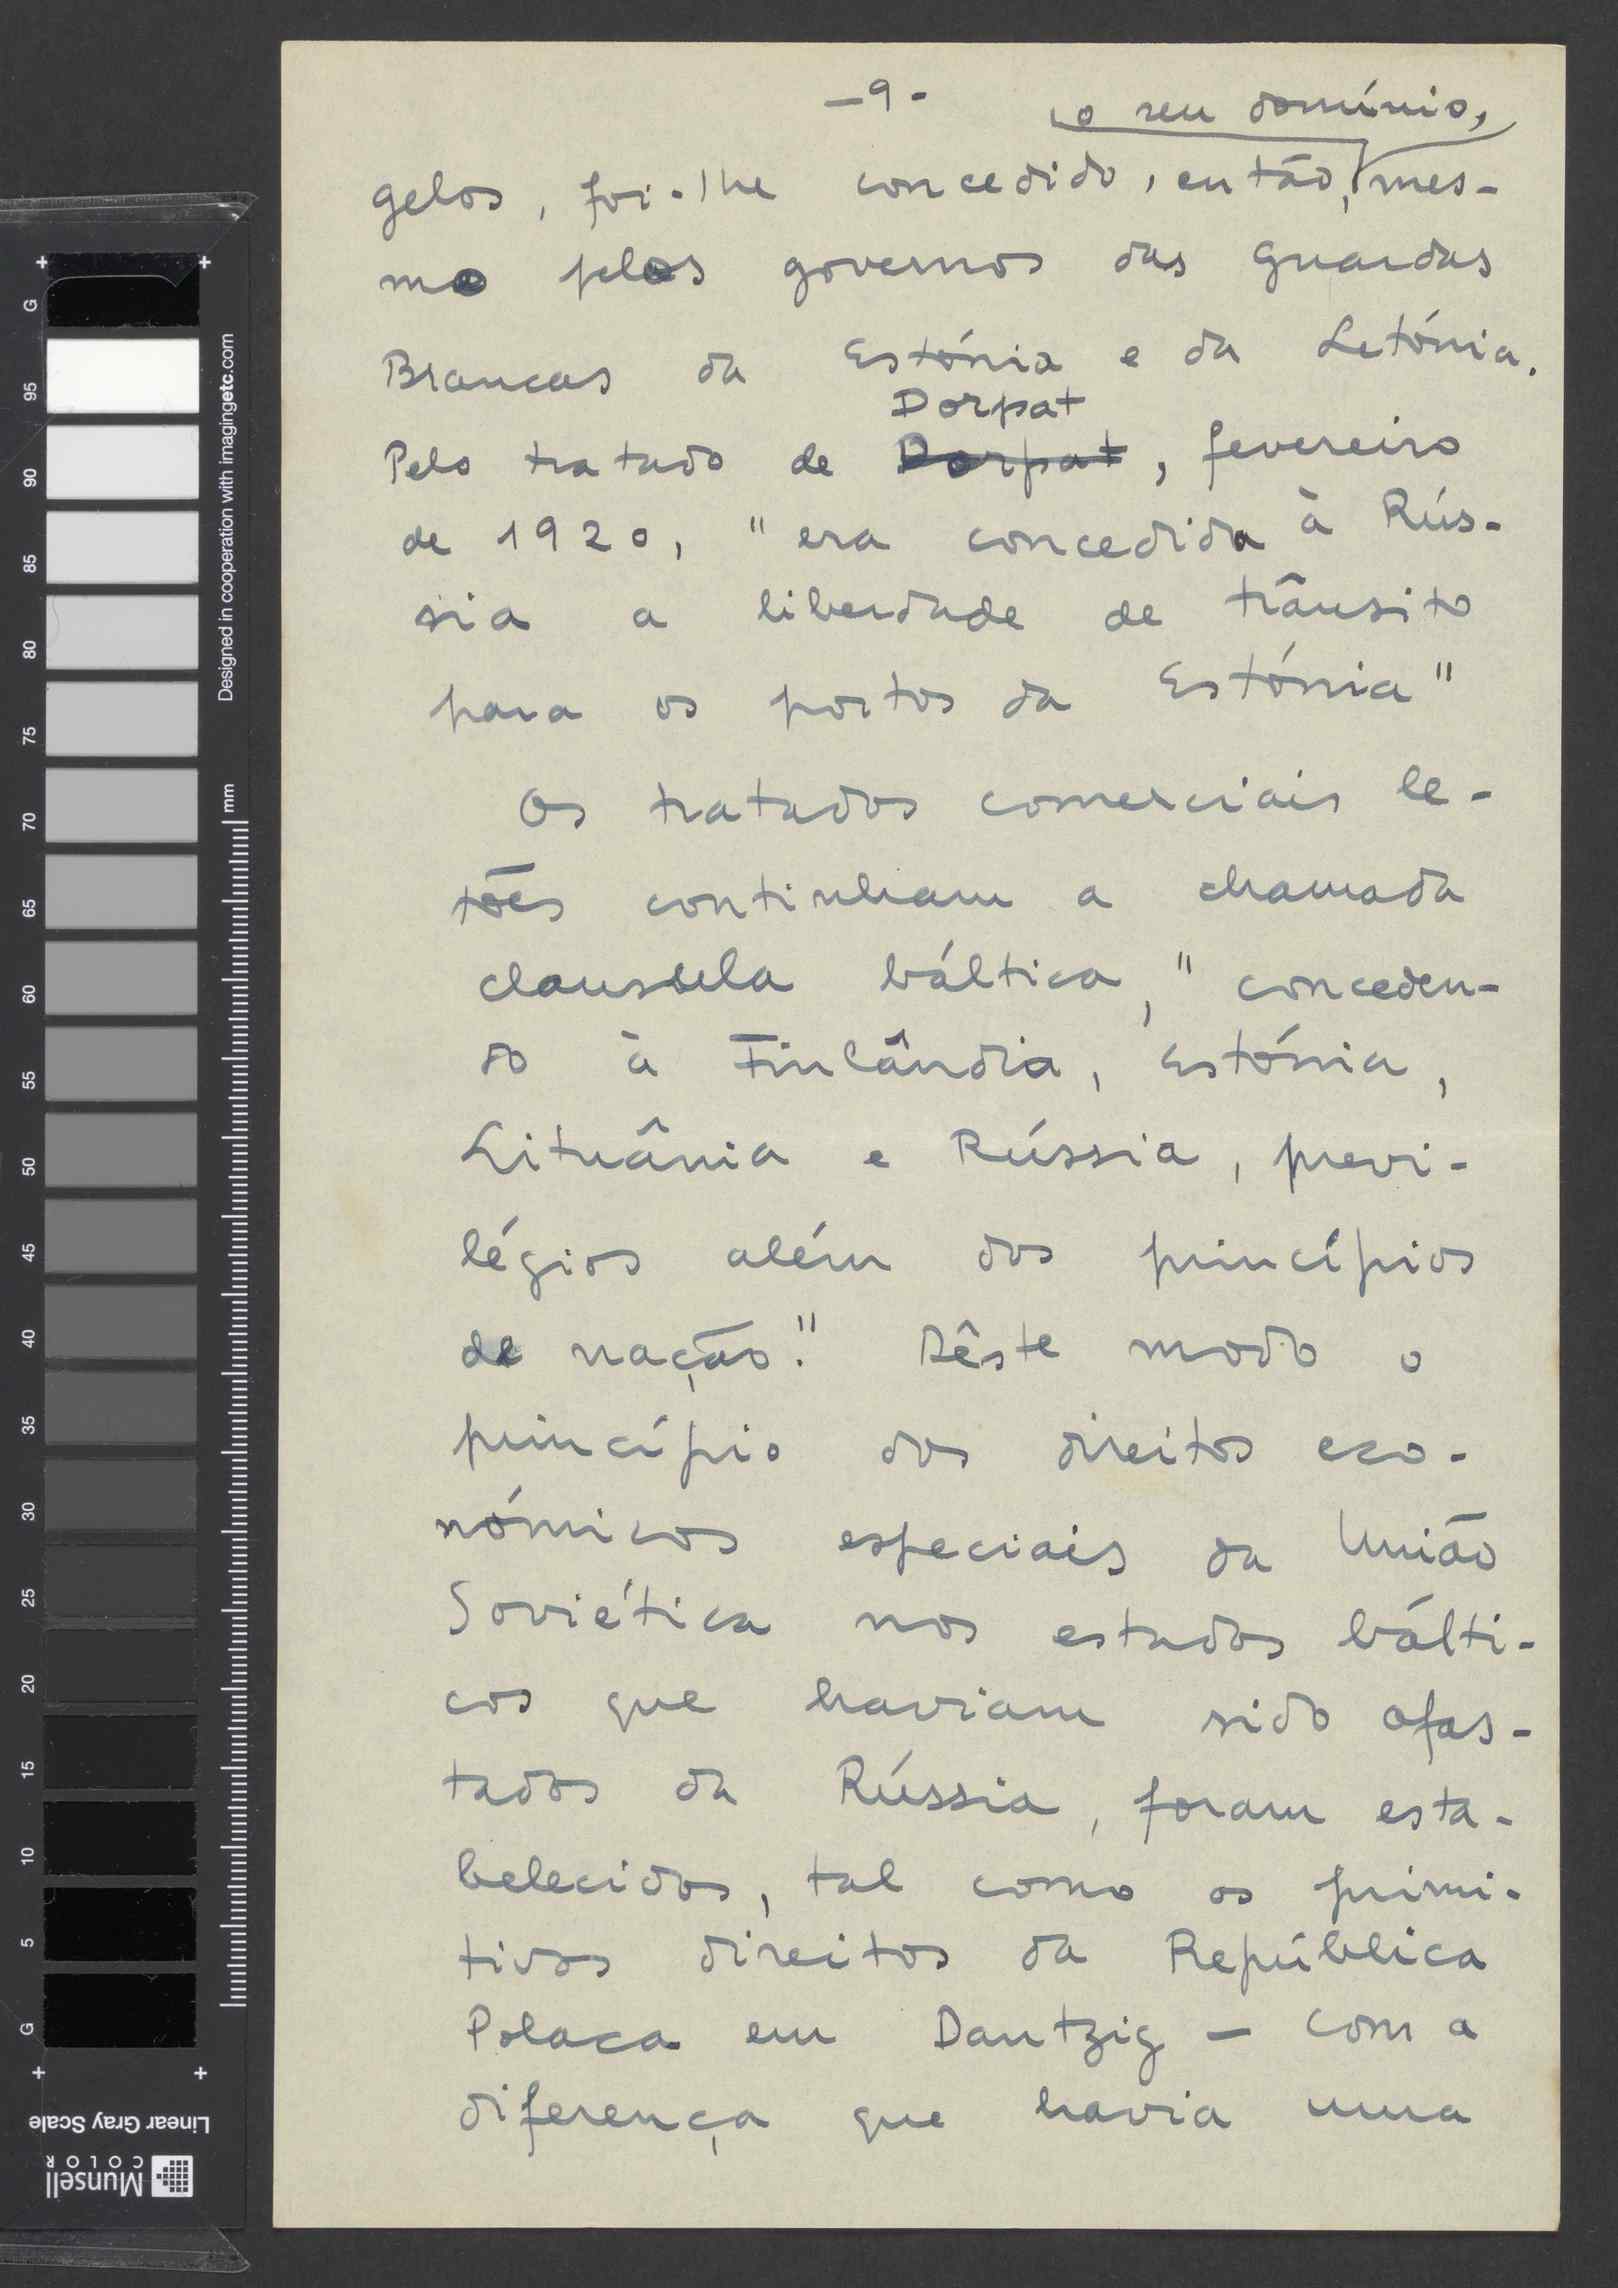 -9-
o seu domínio,
gelos, foi-lhe concedido, então, mes-
mo pelos governos das Guardas
Brancas da Estónia e da Letónia.
Dorpat
Pelo tratado de Dorpat, fevereiro
de 1920, "era concedida à Rús-
sia a liberdade de trânsito
para os portos da Estónia"
Os tratados comerciais le-
tões continham a chamada
clausula báltica, "conceden-
do à Finlândia, Estónia,
Lituânia e Rússia, previ-
légios além dos princípios
de nação." Dêste modo o
princípio dos direitos eco-
nómicos especiais da União
Soviética nos estados bálti-
cos que haviam sido afas-
tados da Rússia, foram esta-
belecidos, tal como os primi-
tivos direitos da República
Polaca em Dantzig — com a
diferença que havia uma
G
95
90
85
80
75
70
65
60
55
50
45
40
35
30
25
20
15
10
5
G
Designed in cooperation with imagingetc.com
mm
Linear Gray Scale
Munsell
COLOR